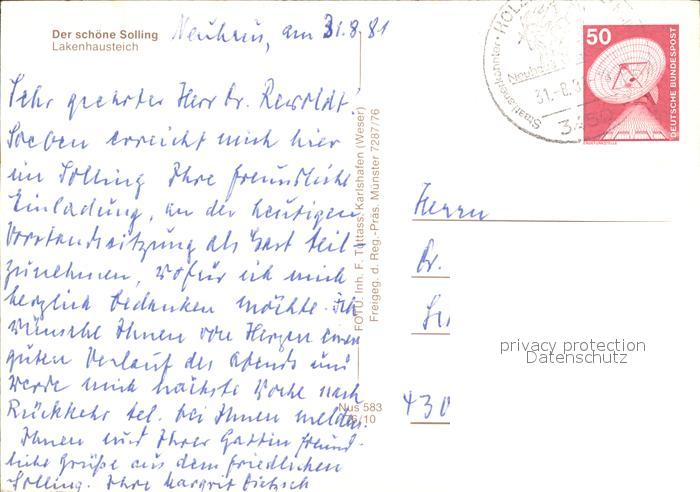 Der schöne Solling
Lakenhausteich
Neuhaus, am 31.8.81
Sehr geehrter Herr Dr. Rewoldt!
Soeben erreicht mich hier
im Solling Ihre freundliche
Einladung, an der heutigen
Vorstandssitzung als Gast teil
zunehmen, wofür ich mich
herzlich bedanken möchte. Ich
wünsche Ihnen von Herzen einen
guten Verlauf des Abends und
werde mich nächste Woche nach
Rückkehr tel. bei Ihnen melden.
Ihnen und Ihrer Gattin freund-
liche Grüße aus dem friedlichen
Solling. Ihre Margrit Dietzsch
FOTO: Inh. F. Tuttass, Karlshafen (Weser)
Freigeg. d. Reg.-Präs. Münster 7287/76
Nus 583
/10
HOLZ
Neuhaus
Staatl. anerkannter
31.-8.8
3450
50
DEUTSCHE BUNDESPOST
Herrn
Dr.
430
privacy protection
Datenschutz